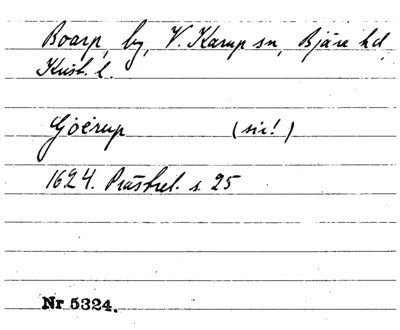 Boarp, by, V. Karup sn, Bjäre hd,
Krist. l.
Gjoerup (sic!)
1624. Prästrel. s. 25
Nr 5324.